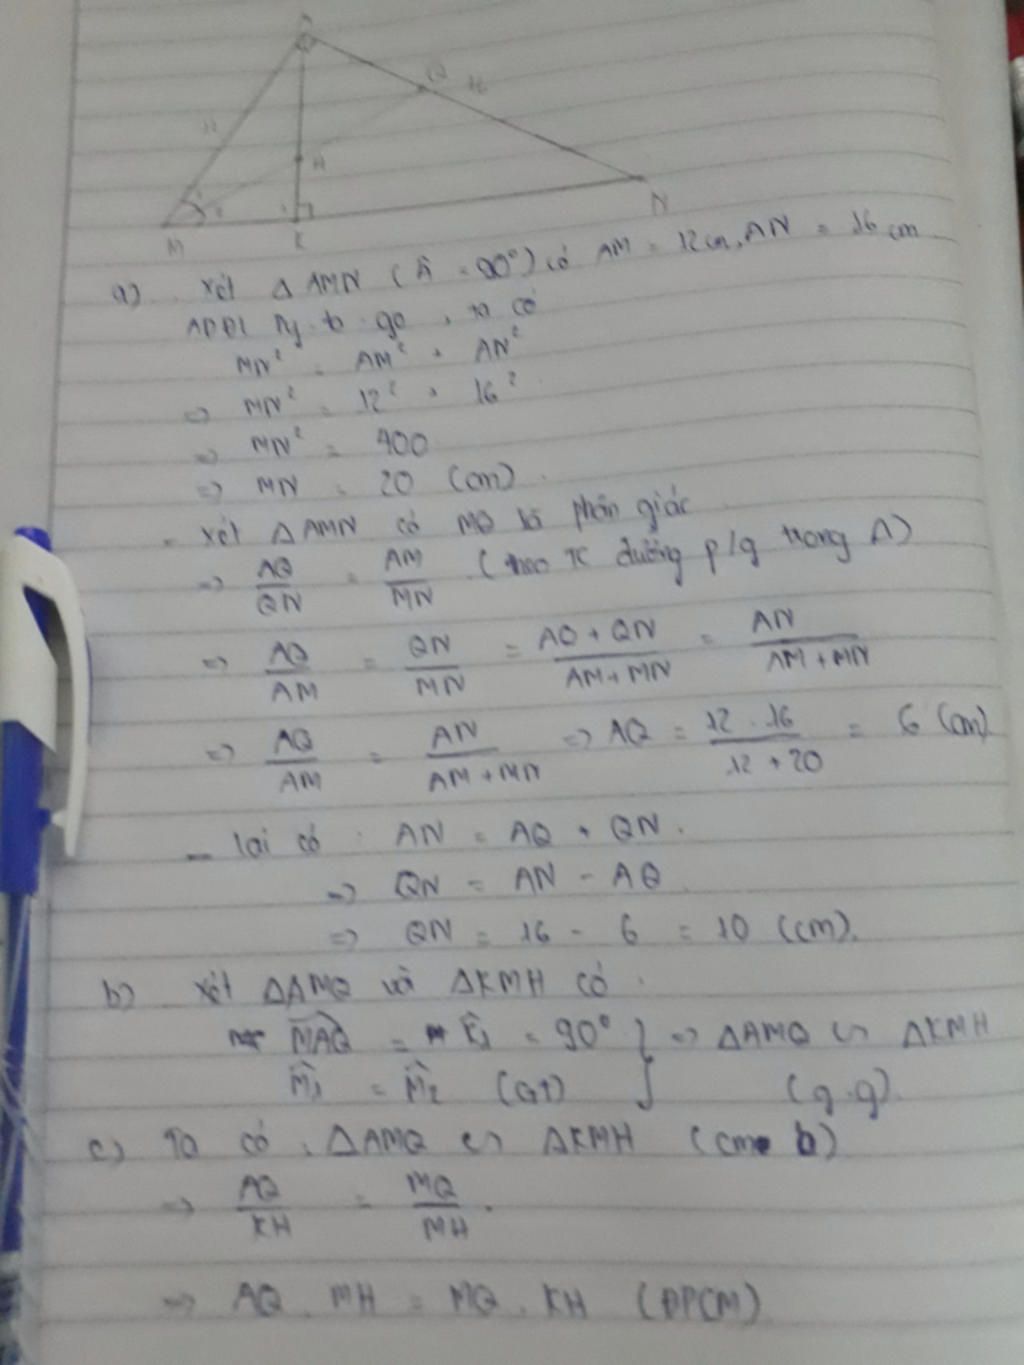 A
12
Q
16
H
M
K
N
a) Xét △ AMN (Â = 90°) có AM = 12cm, AN = 16cm
ADĐL Py-ta-go, ta có
MN² = AM² + AN²
=> MN² = 12² + 16²
=> MN² = 400
=> MN = 20 (cm).
- Xét △ AMN có MQ là phân giác
=> AQ/QN = AM/MN (theo TC đường p/g trong △)
=> AQ/AM = QN/MN = AQ + QN/AM + MN = AN/AM + MN
=> AQ/AM = AN/AM + MN => AQ = 12 . 16/12 + 20 = 6 (cm)
- lại có : AN = AQ + QN.
=> QN = AN - AQ
=> QN = 16 - 6 = 10 (cm).
b) Xét △AMQ và △KMH có :
MAQ = K̂₁ = 90° } => △AMQ ∽ △KMH
M̂₁ = M̂₂ (GT) (g.g)
c) Ta có : △AMQ ∽ △KMH (cm b)
=> AQ/KH = MQ/MH .
=> AQ . MH = MQ . KH (ĐPCM)